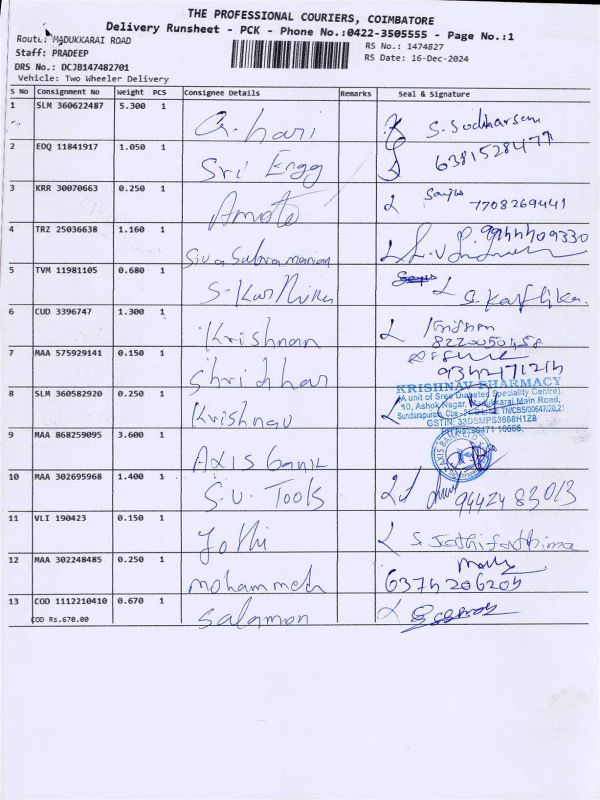 THE PROFESSIONAL COURIERS, COIMBATORE
Delivery Runsheet - PCK - Phone No.:0422-3505555 - Page No.:1
Route: MADUKKARAI ROAD
RS No.: 1474827
Staff: PRADEEP
RS Date: 16-Dec-2024
DRS No.: DCJB147482701
Vehicle: Two Wheeler Delivery
S No Consignment No Weight PCS Consignee Details Remarks Seal & Signature
1 SLM 360622487 5.300 1 hari S. Sudharsan
2 EDQ 11841917 1.050 1 Sri Engg
3 KRR 30070663 0.250 1 7708269441
4 TRZ 25036638 1.160 1 Siva Subramanian
5 TVM 11981105 0.680 1 S. Karthika S. Karthika.
6 CUD 3396747 1.300 1 Krishnan
7 MAA 575929141 0.150 1 Shridhar
KRISHNAV PHARMACY
(A unit of Sree Diabetes Speciality Centre)
10, Ashok Nagar, Madukkarai Main Road,
8 SLM 360582920 0.250 1 Krishnav
GSTIN: 33DSMPS3668H1Z8
9 MAA 868259095 3.600 1 Axis bank AXIS BANK LTD
10 MAA 302695968 1.400 1 S.U. Tools
11 VLI 190423 0.150 1 Jothi S. Jothi
12 MAA 302248485 0.250 1 mohammed
13 COD 1112210410 0.670 1 Salamon
COD Rs.670.00